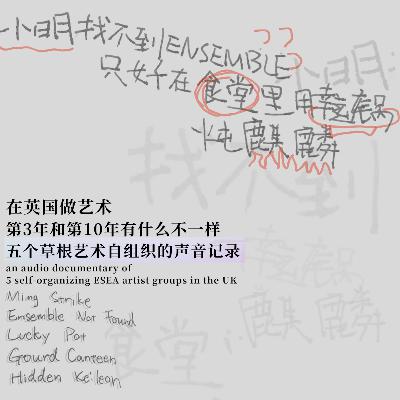 小明找不到ENSEMBLE
只好在食堂里用幸运锅
炖麒麟
在英国做艺术
第3年和第10年有什么不一样
五个草根艺术自组织的声音记录
an audio documentary of
5 self organizing ESEA artist groups in the UK
Ming Strike
Ensemble Not Found
Lucky Pot
Ground Canteen
Hidden Keileon